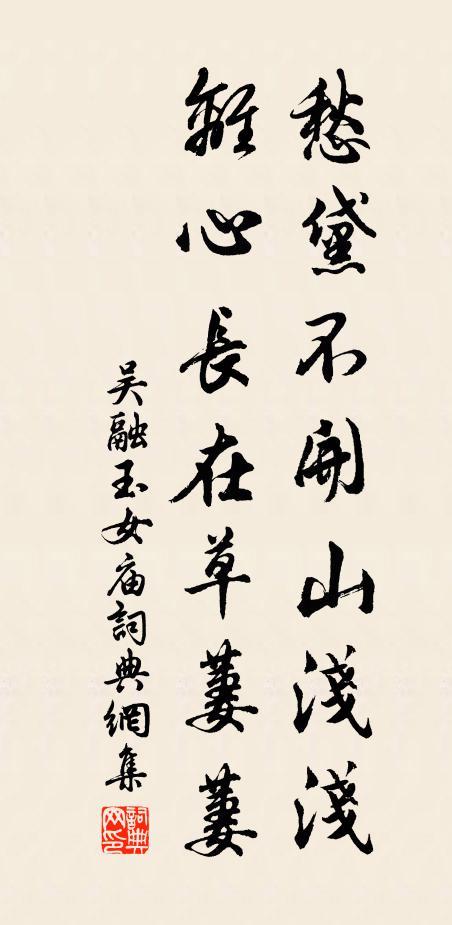 愁黛不開山淺淺
離心長在草萋萋
吴融玉女庙詞典網集
詞典网印